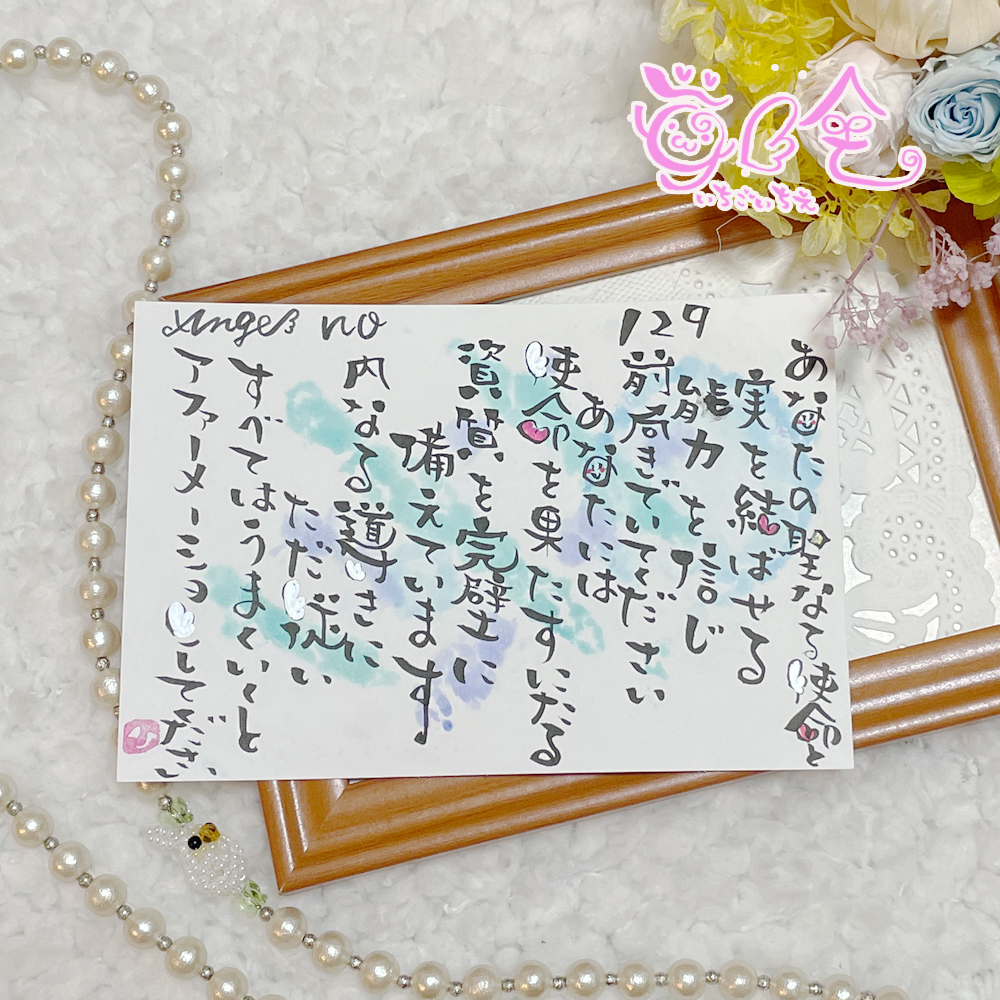 Angel no 129
あなたの聖なる使命と
実を結ばせる
能力を信じ
前向きでいてください
あなたには
使命を果たすにたる
資質を完璧に
備えています
内なる導きに
ただ従い
すべてはうまくいくと
アファーメーションしてください
いちごいちえ